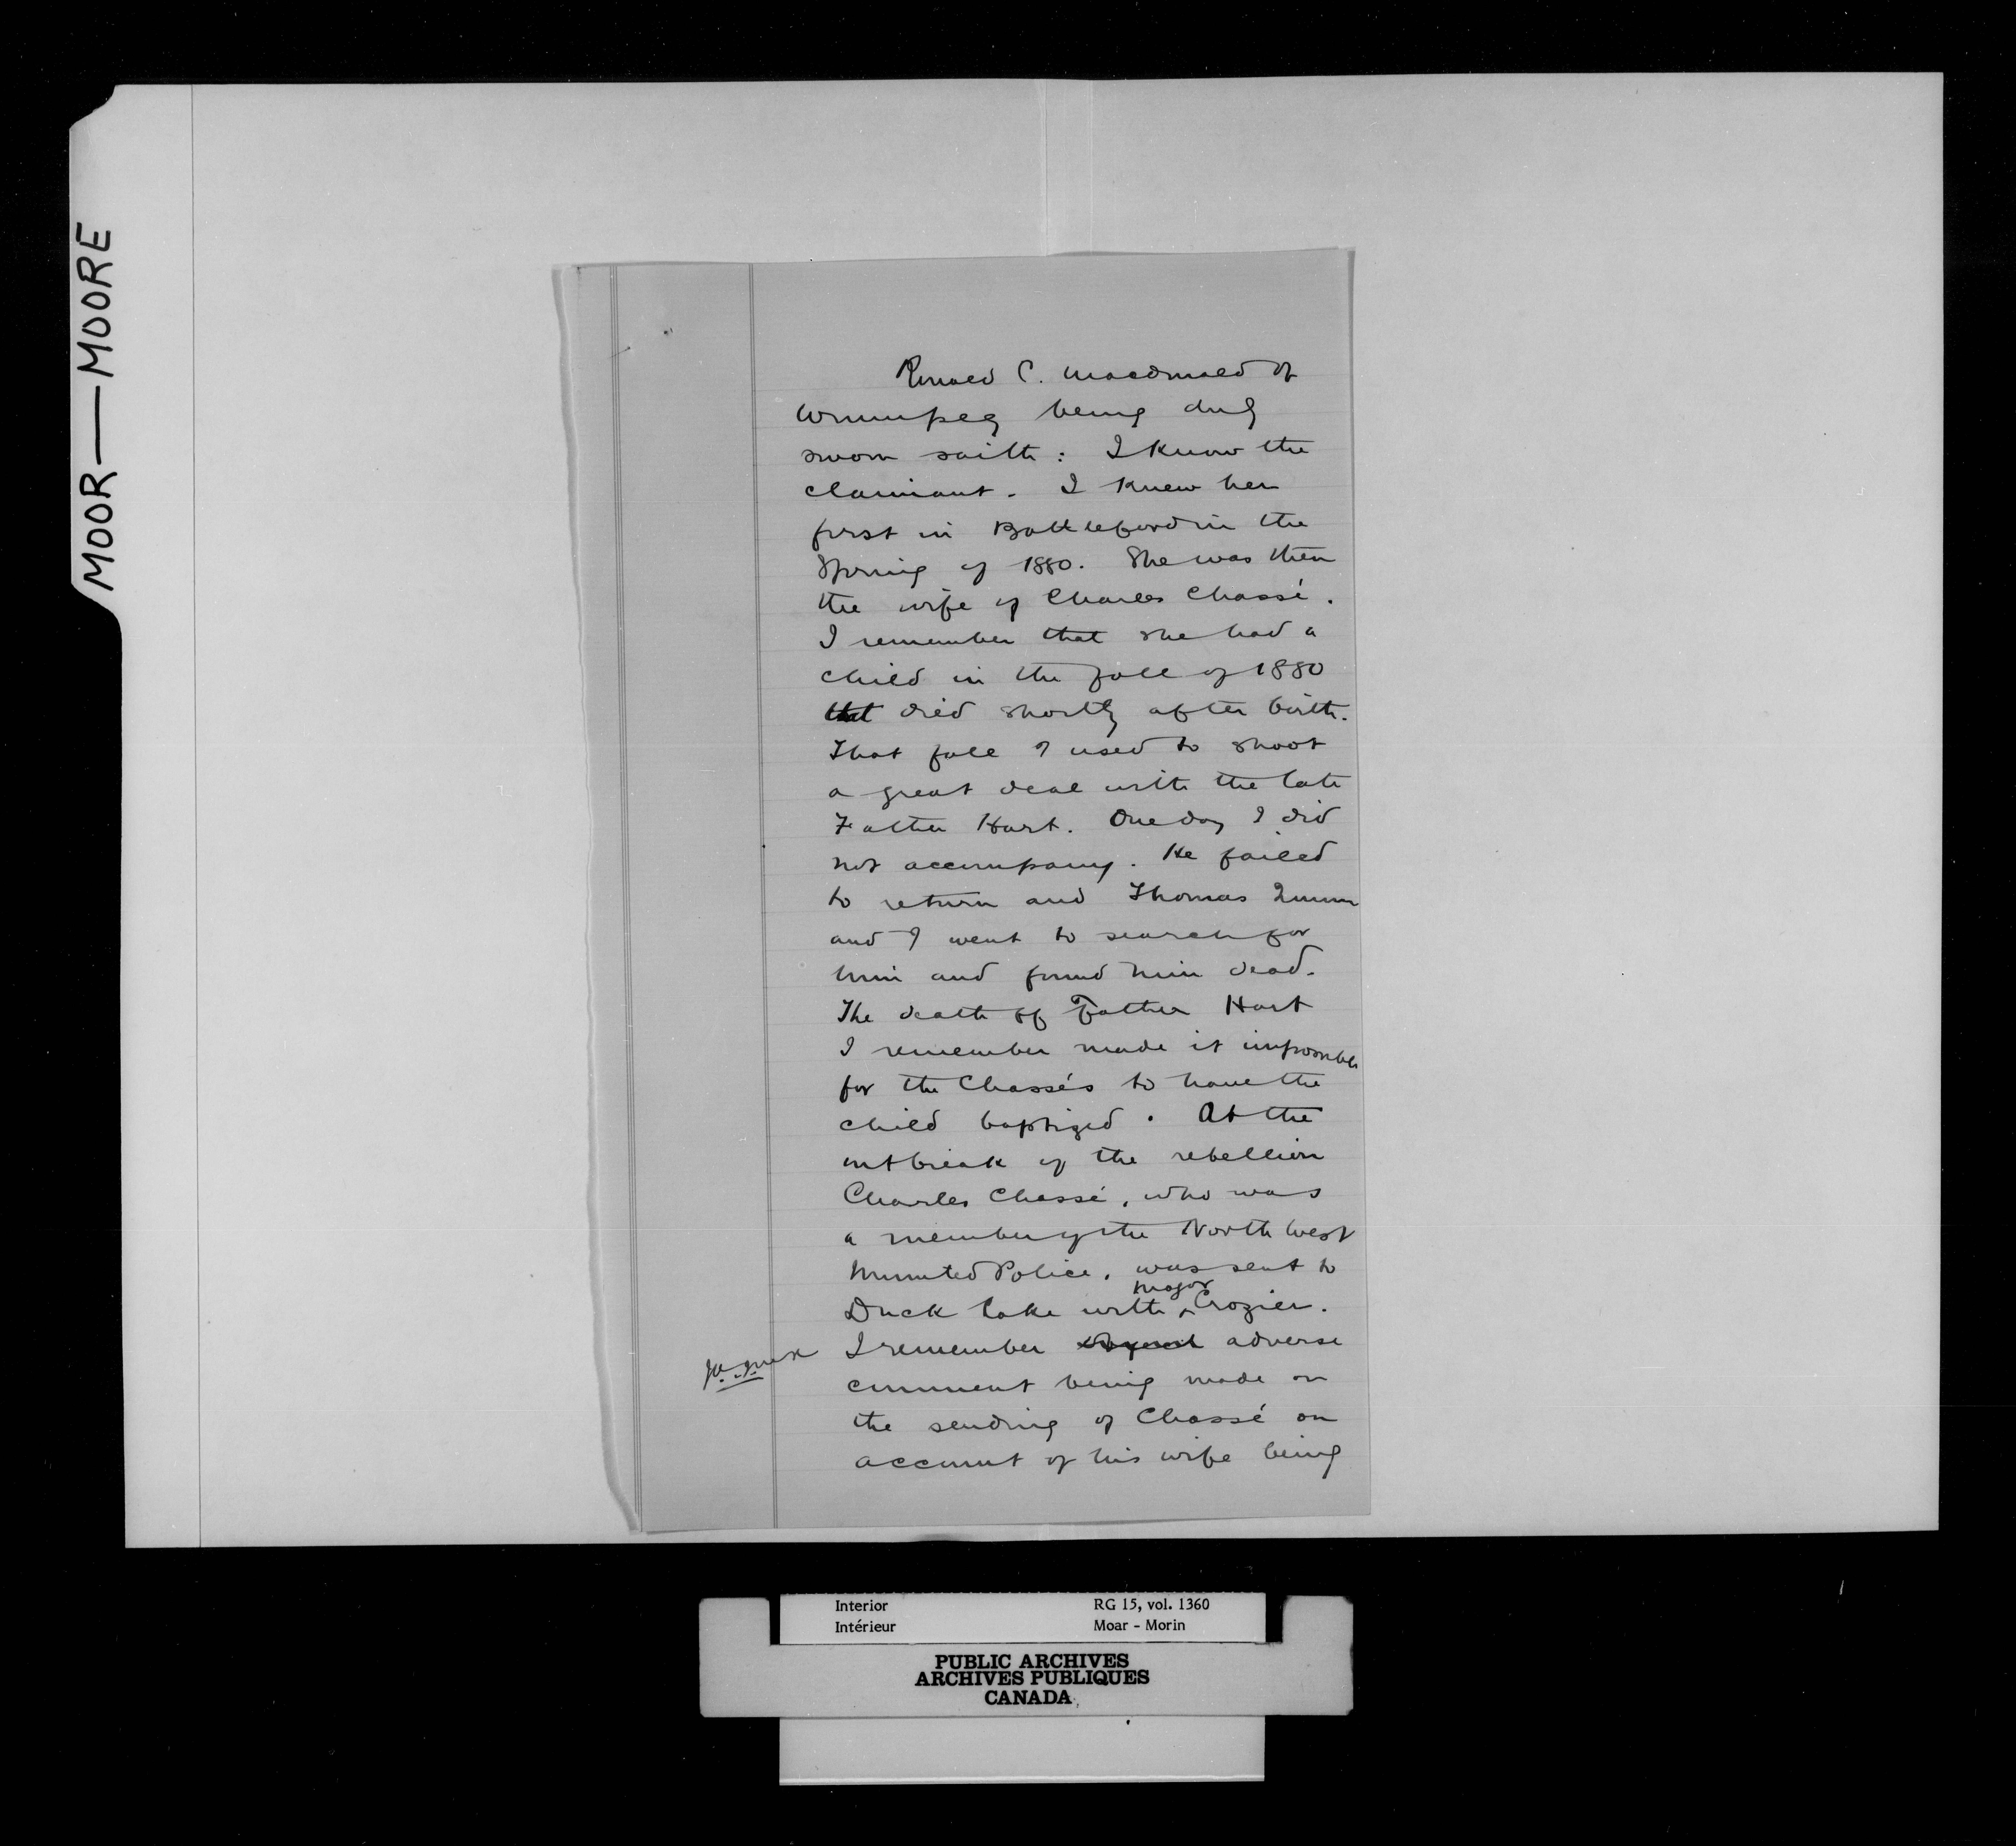 MOOR—MOORE
Ronald C. Macdonald of
Winnipeg being duly
sworn saith: I know the
claimant. I knew her
first in Battleford in the
Spring of 1880. She was then
the wife of Charles Chassé.
I remember that she had a
child in the fall of 1880
that died shortly after birth.
That fall I used to shoot
a great deal with the late
Father Hart. One day I did
not accompany. He failed
to return and Thomas Quinn
and I went to search for
him and found him dead.
The death of Father Hart
I remember made it impossible
for the Chassés to have the
child baptized. At the
outbreak of the rebellion
Charles Chassé, who was
a member of the North West
Mounted Police, was sent to
Duck Lake with Major Crozier.
I remember adverse
comment being made on
the sending of Chassé on
account of his wife being
Interior RG 15, vol. 1360
Intérieur Moar - Morin
PUBLIC ARCHIVES
ARCHIVES PUBLIQUES
CANADA